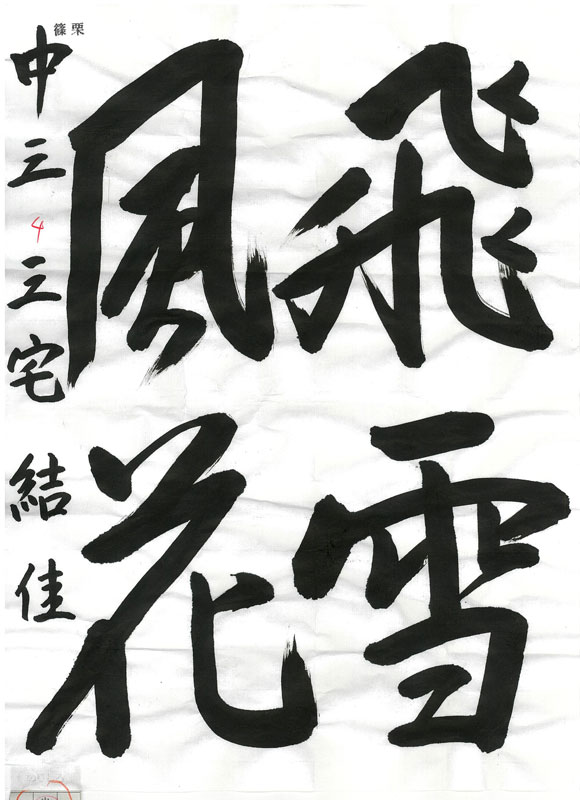 飛雪
風花
篠栗
中三 4 三宅 結佳